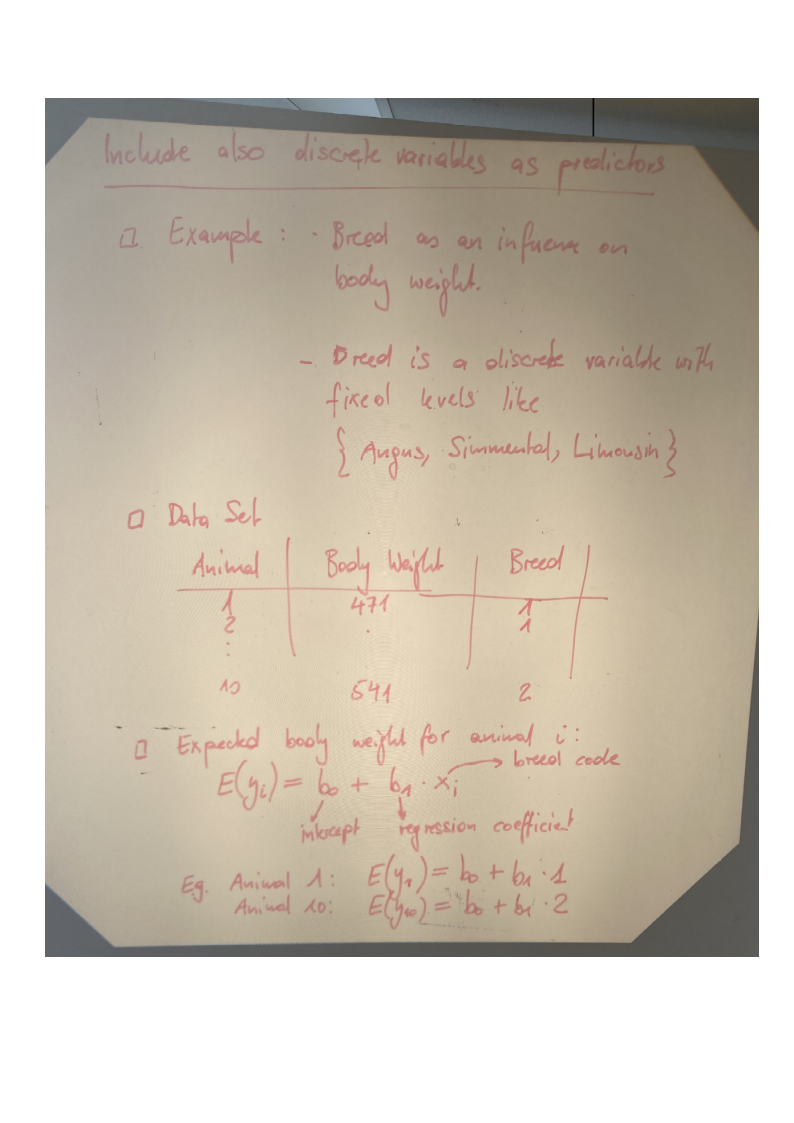 Include also discrete variables as predictors
□ Example : - Breed as an influence on
body weight.
- Breed is a discrete variable with
fixed levels like
{ Angus, Simmental, Limousin }
□ Data Set
Animal Body Weight Breed
1 471 1
2 . 1
⋮
10 541 2
□ Expected body weight for animal i :
→ breed code
E(yi) = b0 + b1 · xi
intercept regression coefficient
Eg. Animal 1: E(y1) = b0 + b1 · 1
Animal 10: E(y10) = b0 + b1 · 2